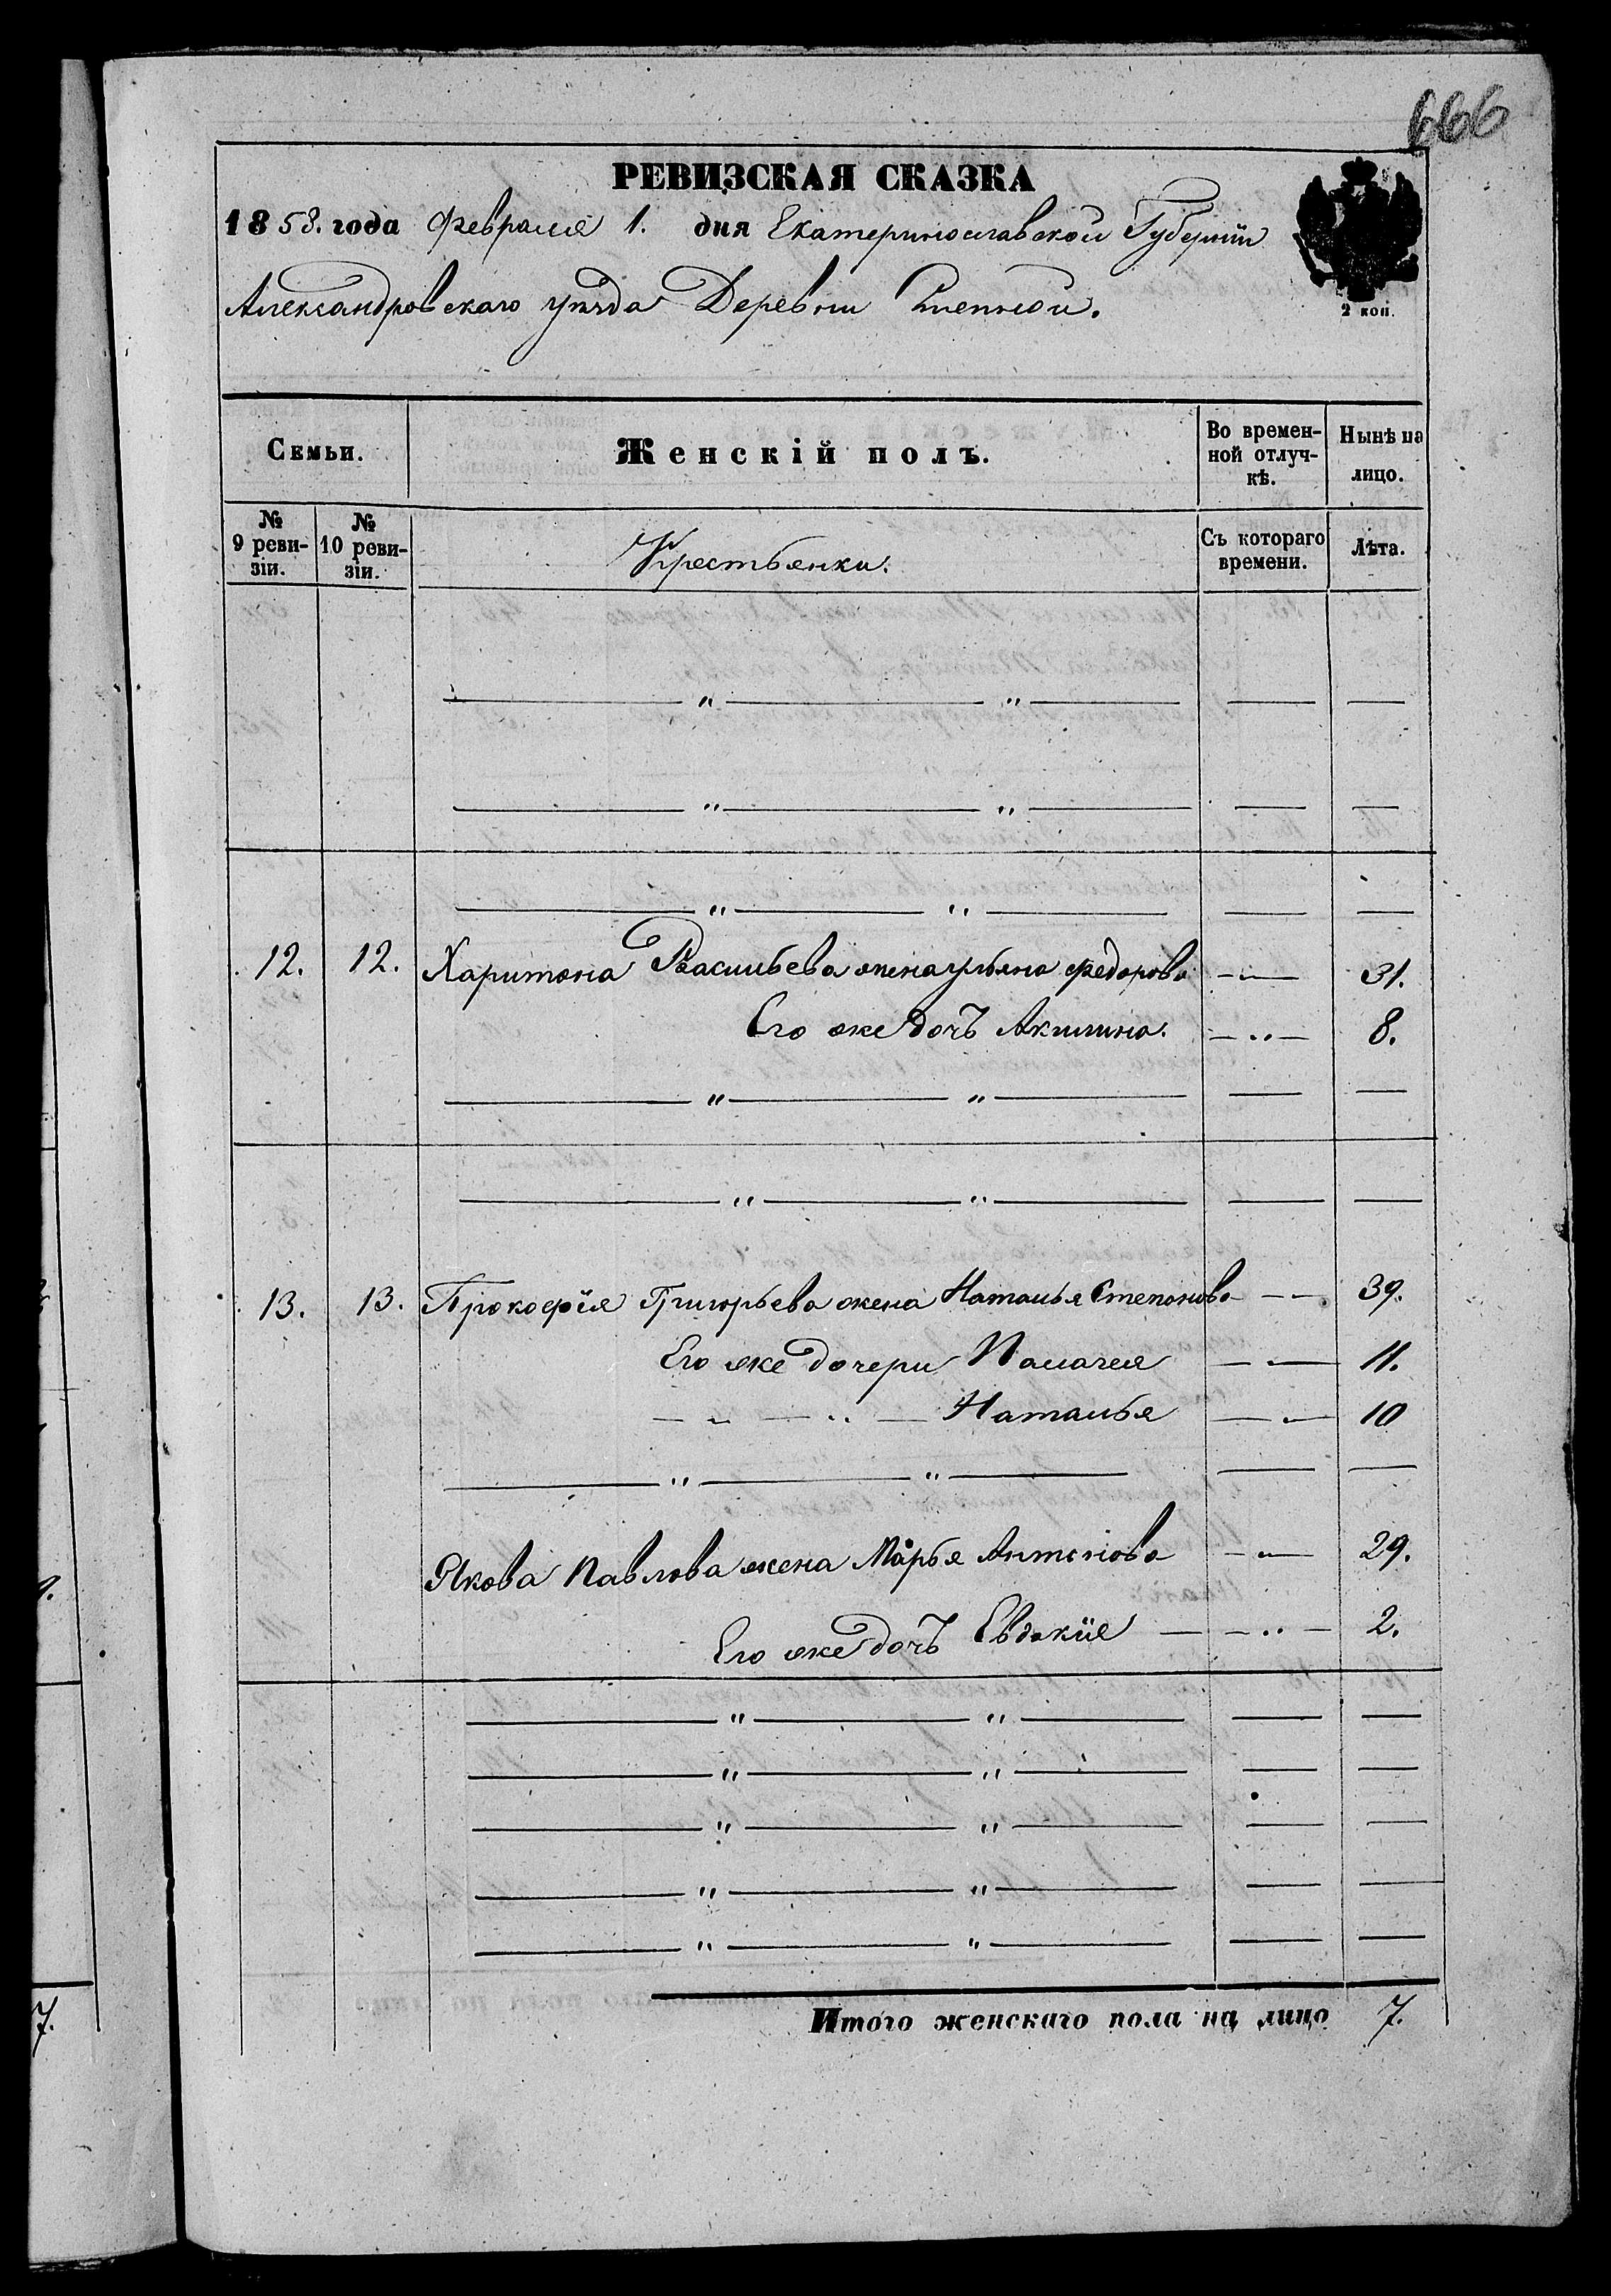 666
РЕВИЗСКАЯ СКАЗКА
1858. года Февраля 1. дня Екатеринославской Губерніи
Александровскаго уѣзда Деревни Степной.
2 коп.
Семьи. Женскій полъ. Во времен-ной отлуч-кѣ. Нынѣ на лицо.
№ 9 реви-зіи. № 10 реви-зіи. Крестьянки. Съ котораго времени. Лѣта.
— " — " — — —
— " — " — — —
— " — " — — —
12. 12. Харитона Васильева жена ульяна Федорова — " — 31.
Его же дочь Акилина. — " — 8.
— " — " — — —
— " — " — — —
13. 13. Прокофія Григорьева жена Наталья Степанова — — 39.
Его же дочери Палагея — " — 11.
— " — " — Наталья — " — 10
— " — " — — —
Якова Павлова жена Марья Антонова — " — 29.
Его же дочь Евдокія — — " — 2.
— " — " — — —
— " — " — — —
— " — " — — —
— " — " — — —
— " — " — — —
Итого женскаго пола на лицо 7.
7.